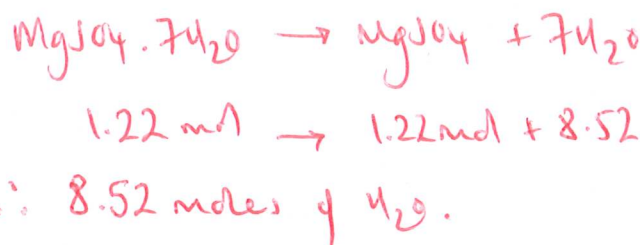 MgSO4.7H2O → MgSO4 + 7H2O
1.22 mol → 1.22 mol + 8.52
∴ 8.52 moles of H2O.